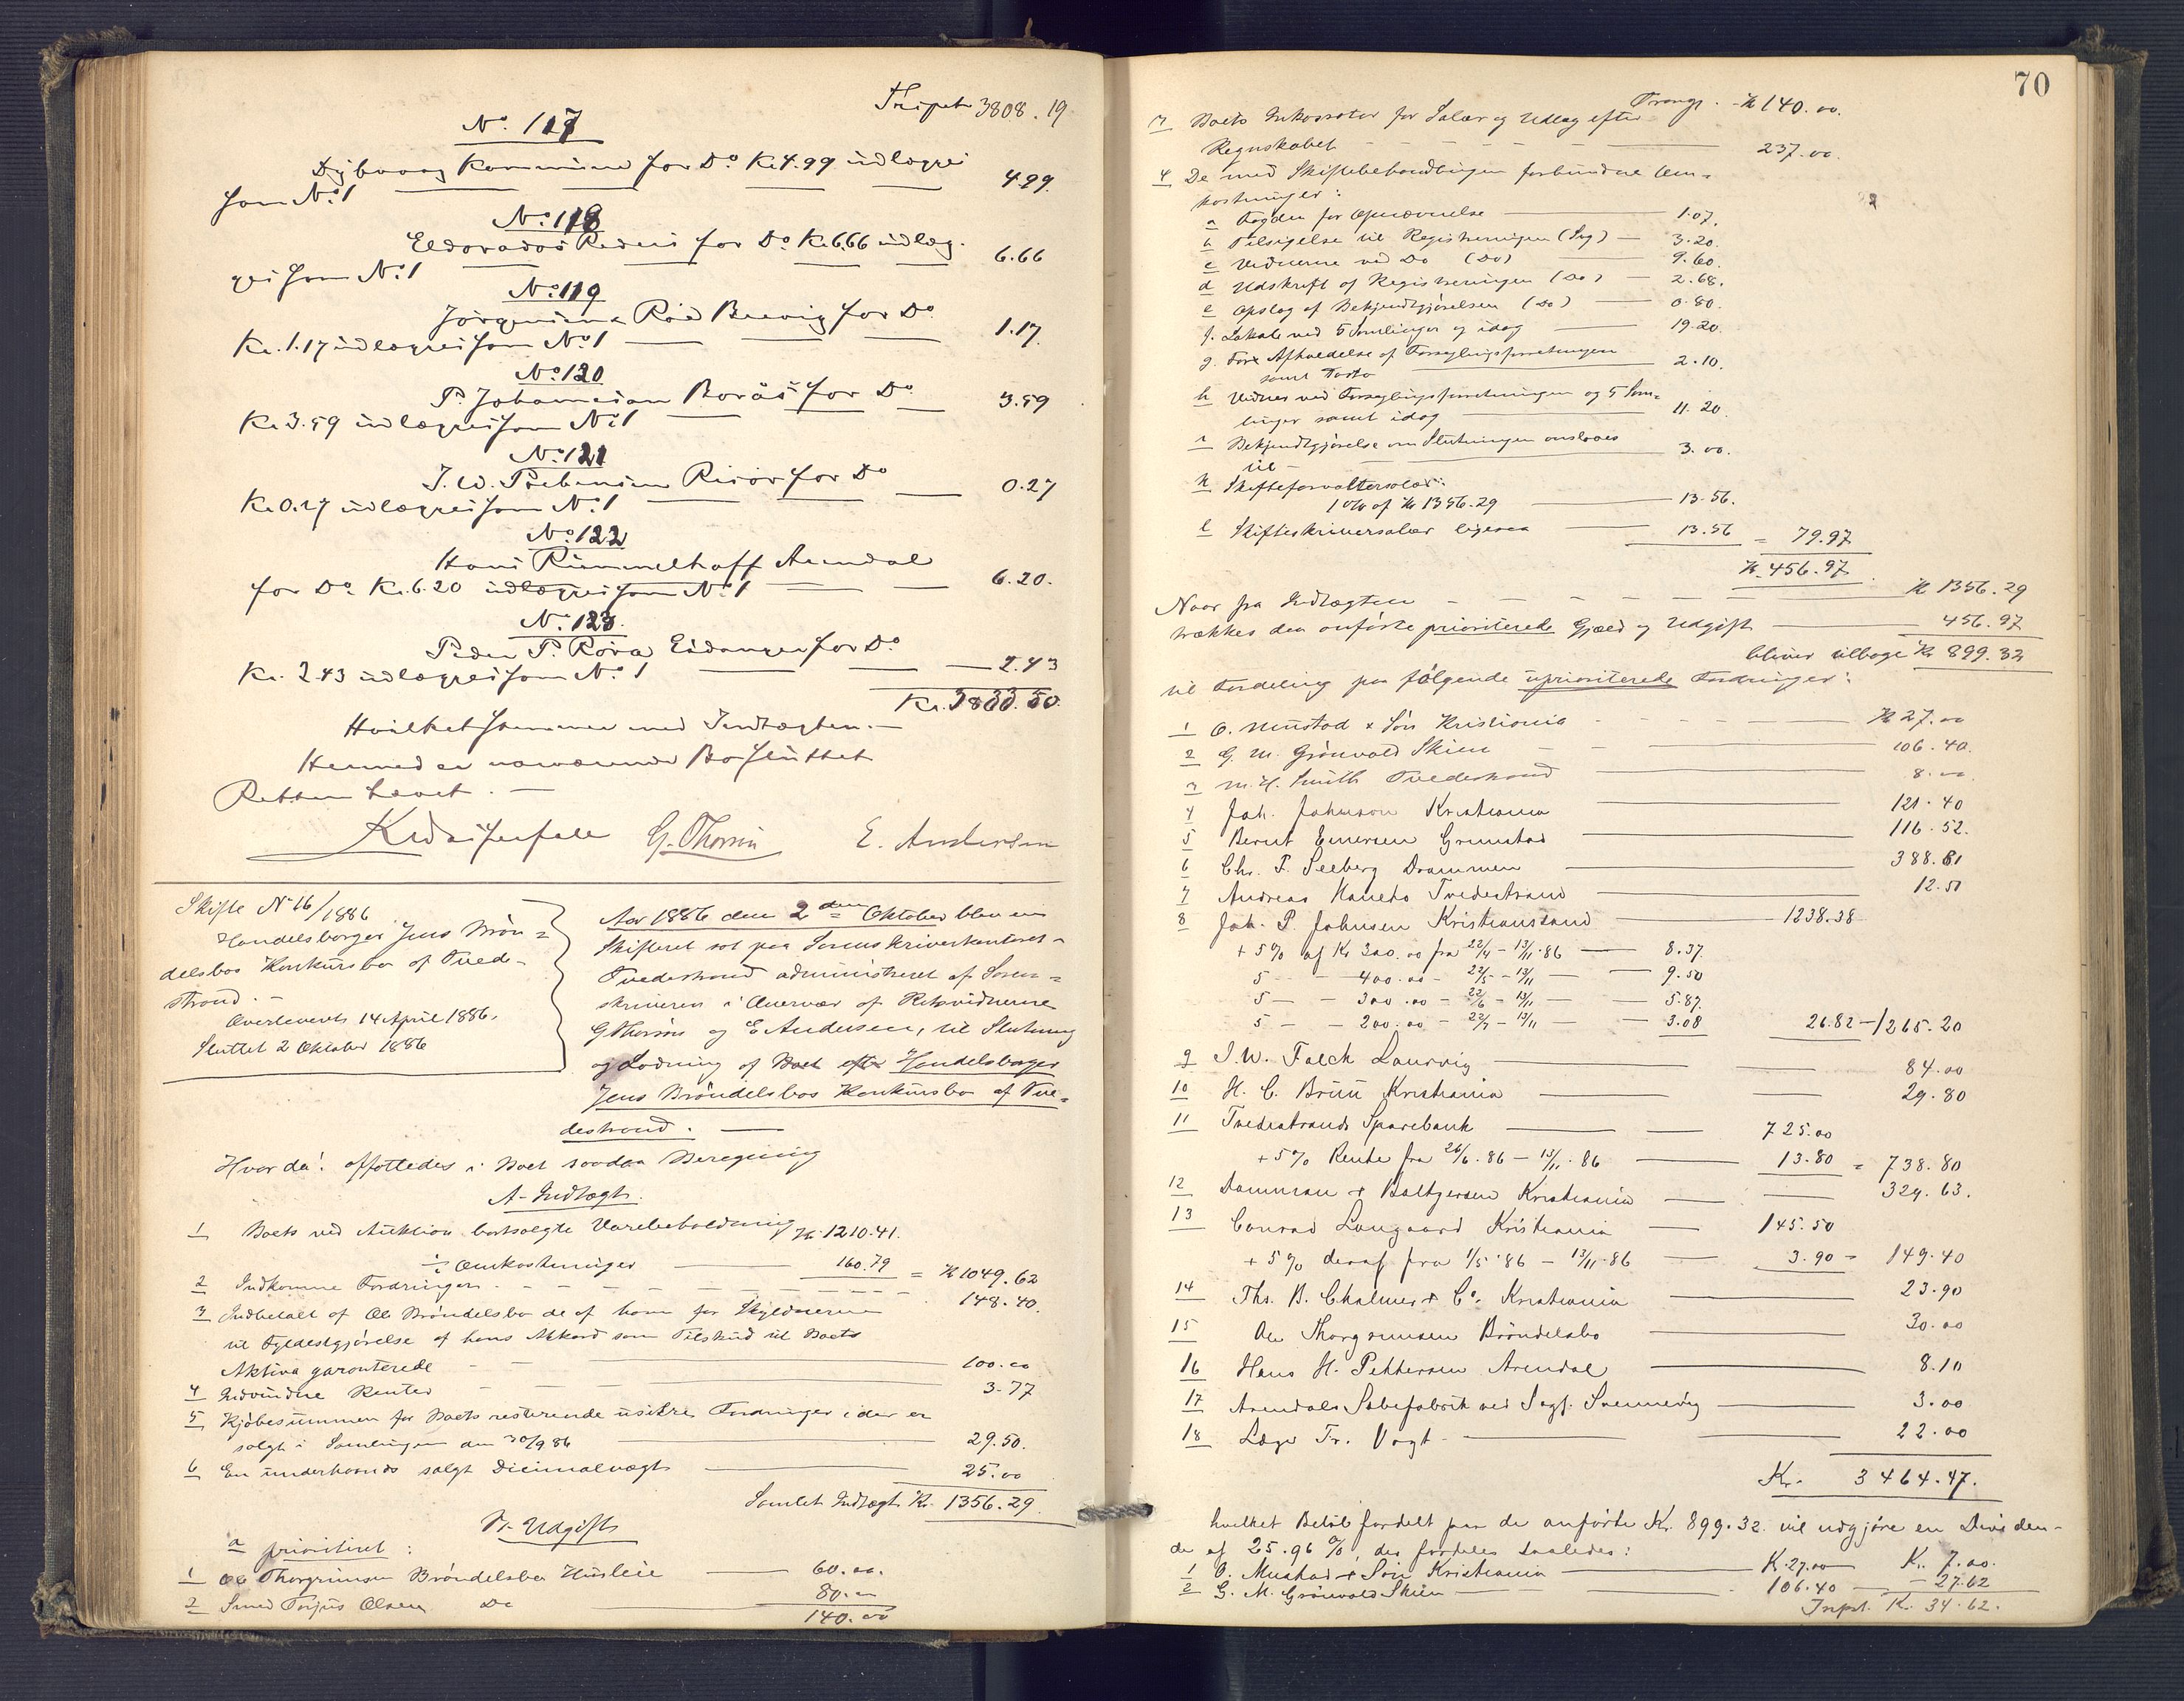 Tripet 3808.19
No. 117
Dybvaag Kommune for Do Kr 4.99 udlægges
som No 1 4.99
No. 118
Eldorados Rederi for Do Kr 6.66 udlæg-
ges som No 1 6.66
No. 119
Jörgensens Röed Brevig for Do
Kr. 1.17 udlægges som No 1 1.17
No. 120
P. Johannesen Borås for Do
Kr 3.59 udlægges som No 1 3.59
No. 121
J. W. Prebensen Risör for Do
Kr. 0.27 udlægges som No 1 0.27
No. 122
Hans Rummelhoff Arendal
for Do Kr. 6.20 udlægges som No 1 6.20.
No. 123.
Peder P. Röra Eidanger for Do
Kr. 2.43 udlægges som No. 1 2.43
Kr. 3833.50.
Hvilket stemmer med Indtægten.—
Hermed er nærværende Bo sluttet
Retten hævet.—
G. Thorsen E. Andersen
Skifte No 16/1886
Handelsborger Jens Brön=
delsbos Konkursbo af Tvede-
strand.—
Overleveret 14 April 1886.
Sluttet 2 Oktober 1886
Aar 1886 den 2den Oktober blev en
Skifteret sat paa Sorenskriverkontoret i
Tvedestrand administreret af Soren=
skriveren i Overvær af Retsvidnerne
G Thorsen og E Andersen, til Slutning
og Lodning af Boet efter Handelsborger
Jens Bröndelsbos Konkursbo af Tve=
destrand.—
Hvor da: affattedes i Boet saadan Beregning
A- Indtægt.
1 Boets ved Auktion bortsolgte Varebeholdning Kr. 1210.41.
÷ Omkostninger 160.79 = Kr 1049.62
2 Indkomne Fordringer 148.40.
3 Indbetalt af Ole Bröndelsbo de af ham for Skyldneren
til Fyldestgjörelse af hans Akkord som Tilskud til Boets
Aktiva garanterede 100.00
4 Indvundne Renter 3.77
5 Kjöbesummen for Boets resterende usikre Fordringer i der er
solgt i Samlingen den 30/9 86 29.50.
6 En underhaands solgt Decimalvægt 25.00
Samlet Indtægt Kr. 1356.29.
B- Udgift
a prioriteret:
1 Ole Thorgrimsen Bröndelsbo Husleie 60.00.
2 Smed Torjus Olsen Do 80.00
140.00
70
Transp. Kr 140.00.
3 Boets Inkassator for Salær og Udlæg efter
Regnskabet 237.00.
4 De med Skiftebehandlingen forbundne Om=
kostninger:
a Fogden for Opnævnelse 1.07.
b Tilsigelse til Registreringen (Lsg) 3.20.
c Vidnerne ved Do (Do) 9.60.
d Udskrift af Registreringen (Do) 2.68.
e Opslag af Bekjendtgjörelsen (Do) 0.80.
f. Lokale ved 5 Samlinger og idag 19.20.
g. For Afholdelse af Forseglingsforretningen
samt Porto 2.10.
h Vidner ved Forseglingsforretningen og 5 Sam=
linger samt idag 11.20.
i Bekjendtgjörelse om Slutningen anslaaes
til — 3.00.
k Skifteforvaltersalær:
1% af Kr 1356.29 13.56.
l Skifteskriversalær ligesaa 13.56 = 79.97
Kr. 456.97
Naar fra Indtægten Kr 1356.29
trækkes den anförte prioriterede Gjæld og Udgift 456.97
bliver tilbage Kr 899.32
til Fordeling paa fölgende uprioriterede Fordringer:
1 O. Mustad & Sön Kristiania Kr 27.00
2 G. M. Grönvold Skien 106.40.
3 M. H. Smith Tvedestrand 8.00.
4 Joh. Johnson Kristiania 121.40
5 Bernt Evensen Grimstad 116.52.
6 Chr. F. Seeberg Drammen 388.81
7 Andreas Hanebo Tvedestrand 12.51
8 Joh. P. Johnsen Kristianssand 1238.38
+ 5% af Kr 300.00 fra 22/4 - 13/11.86 8.37.
5 — - 400.00 - 22/5 - 13/11 9.50
5 — - 300.00 - 22/6 - 13/11 5.87.
5 — - 200.00 - 22/7 - 13/11 3.08 26.82 — 1265.20
9 I. W. Falck Laurvig 84.00
10 H. C. Bruu Kristiania 29.80
11 Tvedestrands Sparebank 725.00
+ 5% Rente fra 26/6.86 - 13/11.86 13.80 = 738.80
12 Dammann & Baltzersen Kristiania 329.63.
13 Conrad Langaard Kristiania 145.50
+ 5% deraf fra 1/5.86 - 13/11.86 3.90 = 149.40
14 Ths. B. Chalmer & Co. Kristiania 23.90
15 Ole Thorgrimsen Bröndelsbo 30.00
16 Hans H. Pettersen Arendal 8.10
17 Arendals Sæbefabrik ved Sagf. Svennevig 3.00
18 Læge Fr. Vogt 22.00
Kr. 3464.47.
hvilket Belöb fordelt paa de anförte Kr. 899.32 vil udgjöre en Dividen-
de af 25.96%, der fordeles saaledes:
1 O. Mustad & Sön Kristiania Kr. 27.00 Kr. 7.00.
2 G. M. Grönvold Skien 106.40 — 27.62
Trspt. Kr. 34.62.